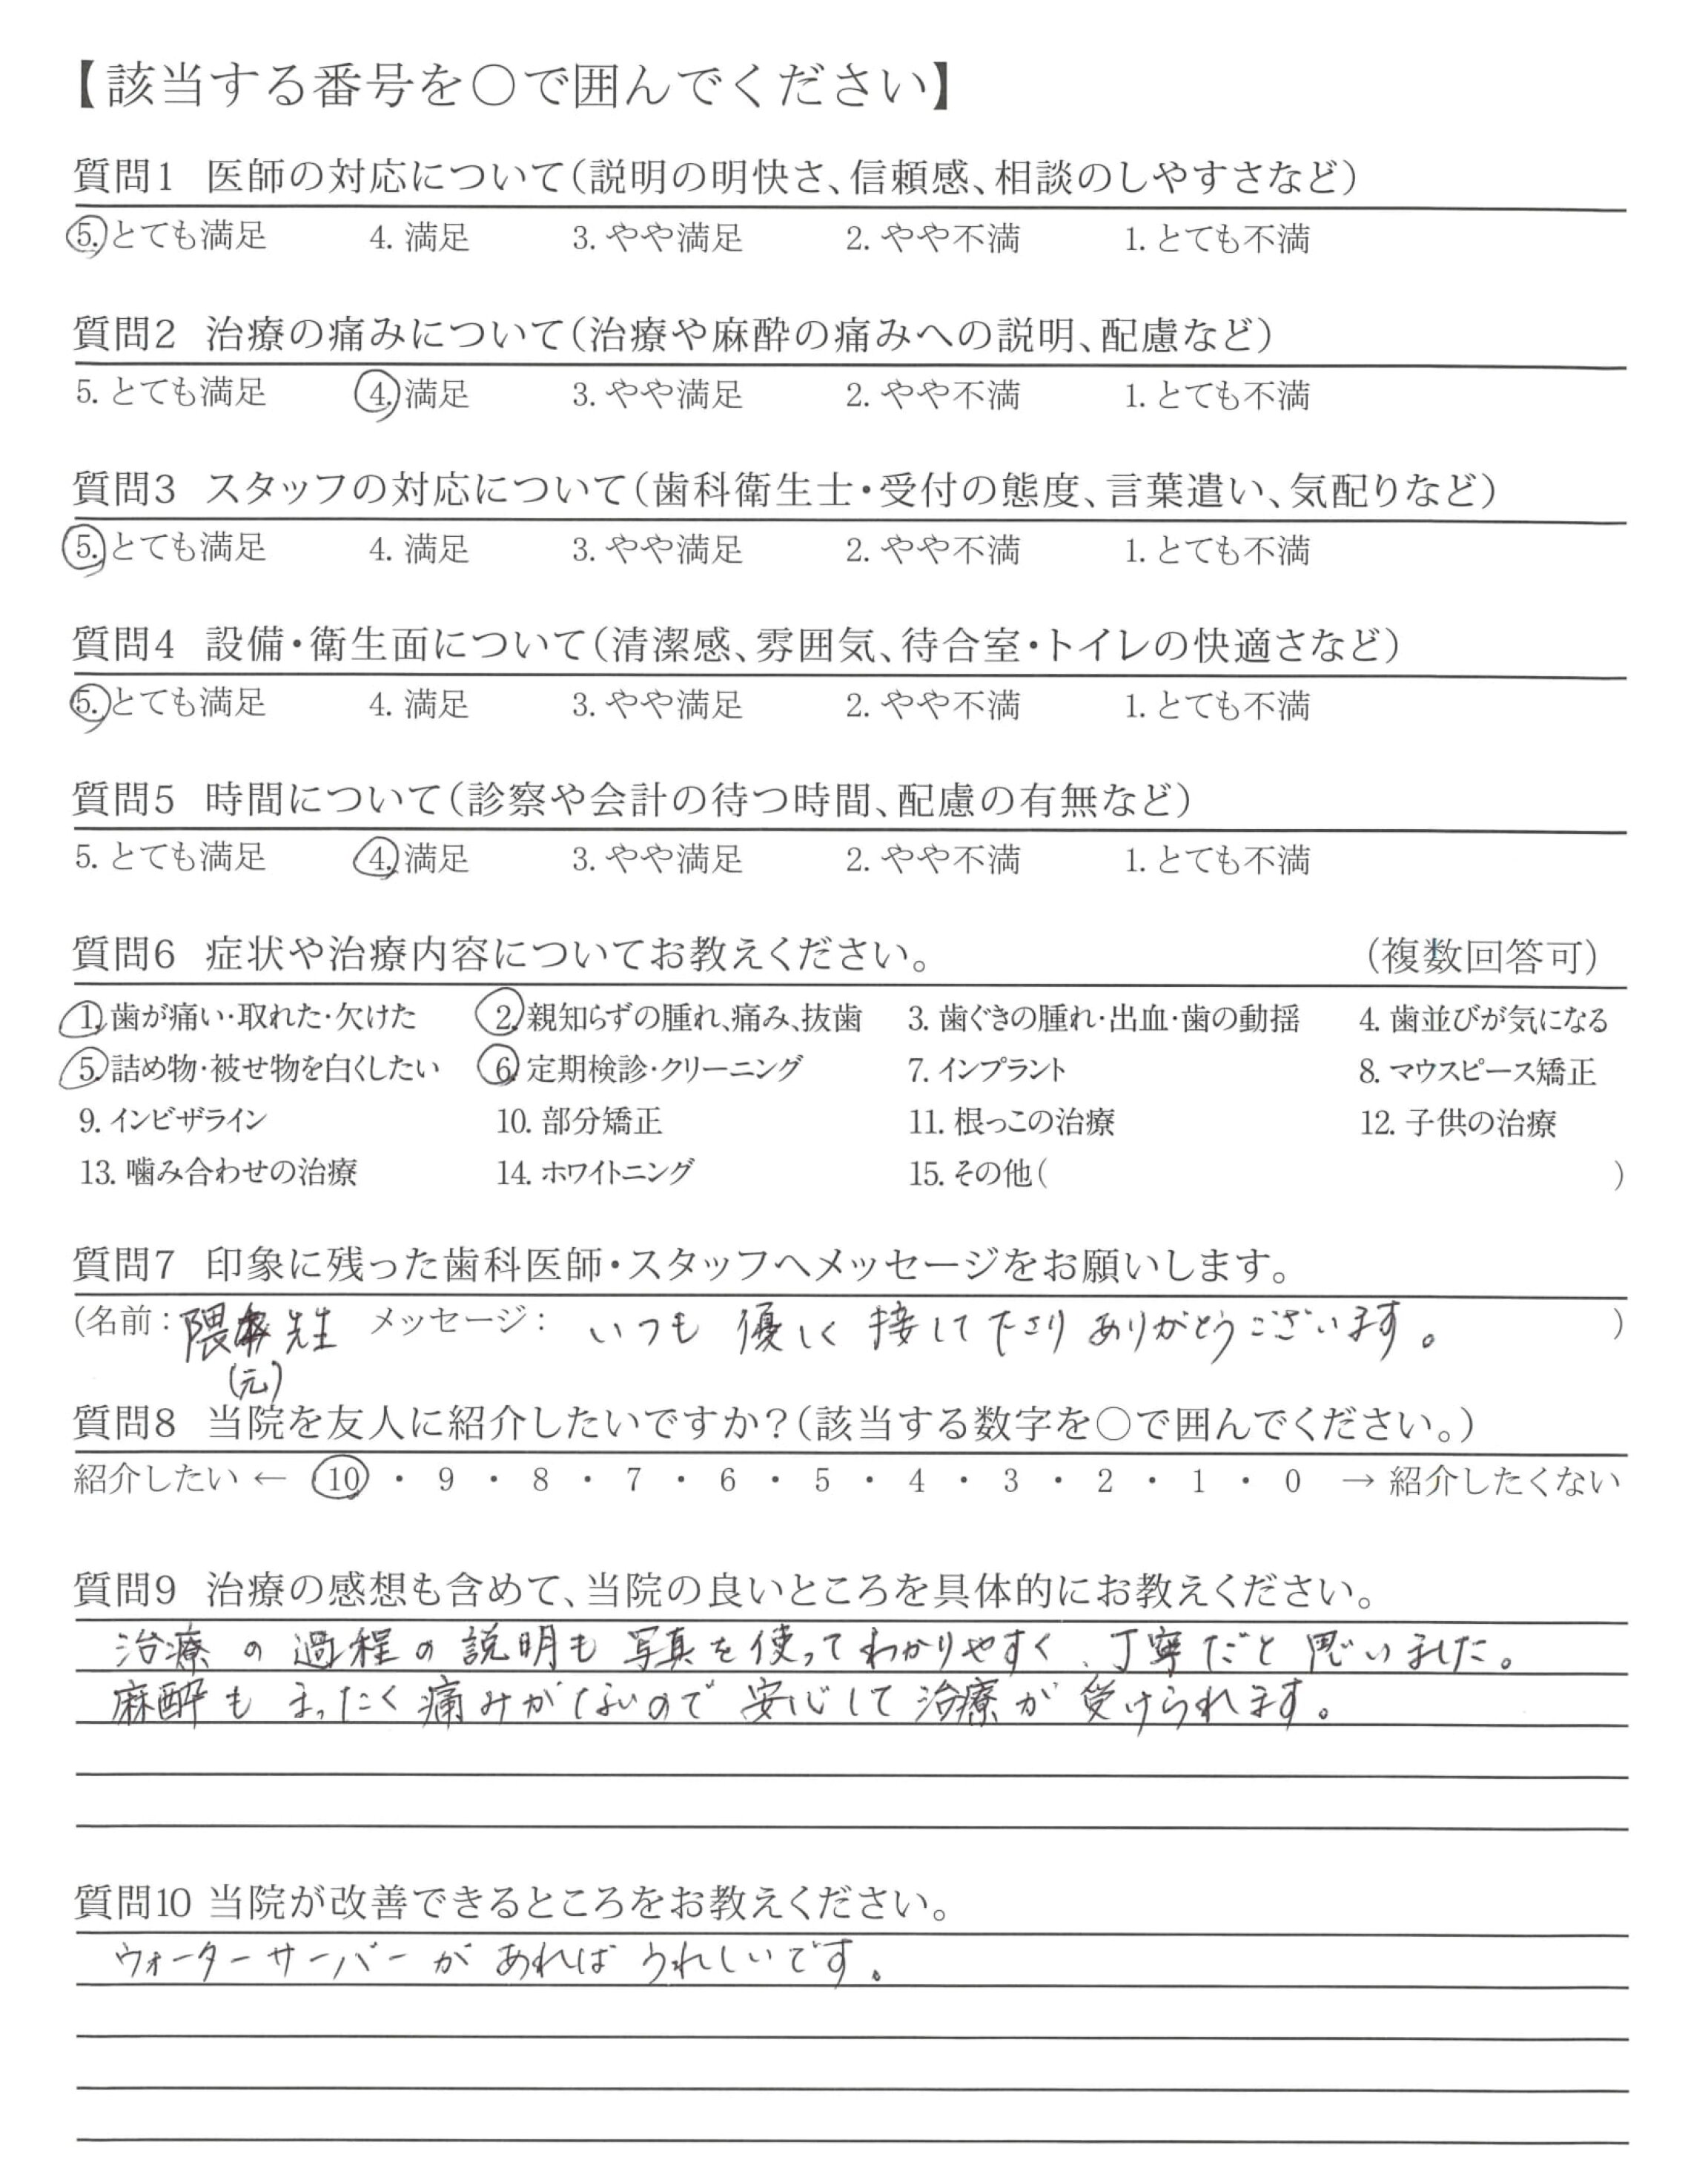 【該当する番号を○で囲んでください】
質問1 医師の対応について(説明の明快さ、信頼感、相談のしやすさなど)
5. とても満足 4. 満足 3. やや満足 2. やや不満 1. とても不満
質問2 治療の痛みについて(治療や麻酔の痛みへの説明、配慮など)
5. とても満足 4. 満足 3. やや満足 2. やや不満 1. とても不満
質問3 スタッフの対応について(歯科衛生士・受付の態度、言葉遣い、気配りなど)
5. とても満足 4. 満足 3. やや満足 2. やや不満 1. とても不満
質問4 設備・衛生面について(清潔感、雰囲気、待合室・トイレの快適さなど)
5. とても満足 4. 満足 3. やや満足 2. やや不満 1. とても不満
質問5 時間について(診察や会計の待つ時間、配慮の有無など)
5. とても満足 4. 満足 3. やや満足 2. やや不満 1. とても不満
質問6 症状や治療内容についてお教えください。 (複数回答可)
1. 歯が痛い・取れた・欠けた 2. 親知らずの腫れ、痛み、抜歯 3. 歯ぐきの腫れ・出血・歯の動揺 4. 歯並びが気になる
5. 詰め物・被せ物を白くしたい 6. 定期検診・クリーニング 7. インプラント 8. マウスピース矯正
9. インビザライン 10. 部分矯正 11. 根っこの治療 12. 子供の治療
13. 噛み合わせの治療 14. ホワイトニング 15. その他( )
質問7 印象に残った歯科医師・スタッフへメッセージをお願いします。
(名前: 隈 先生 メッセージ: いつも優しく接して下さりありがとうございます。 )
(元)
質問8 当院を友人に紹介したいですか?(該当する数字を○で囲んでください。)
紹介したい ← 10 ・ 9 ・ 8 ・ 7 ・ 6 ・ 5 ・ 4 ・ 3 ・ 2 ・ 1 ・ 0 → 紹介したくない
質問9 治療の感想も含めて、当院の良いところを具体的にお教えください。
治療の過程の説明も写真を使ってわかりやすく、丁寧だと思いました。
麻酔もまったく痛みがないので安心して治療が受けられます。
質問10 当院が改善できるところをお教えください。
ウォーターサーバーがあればうれしいです。